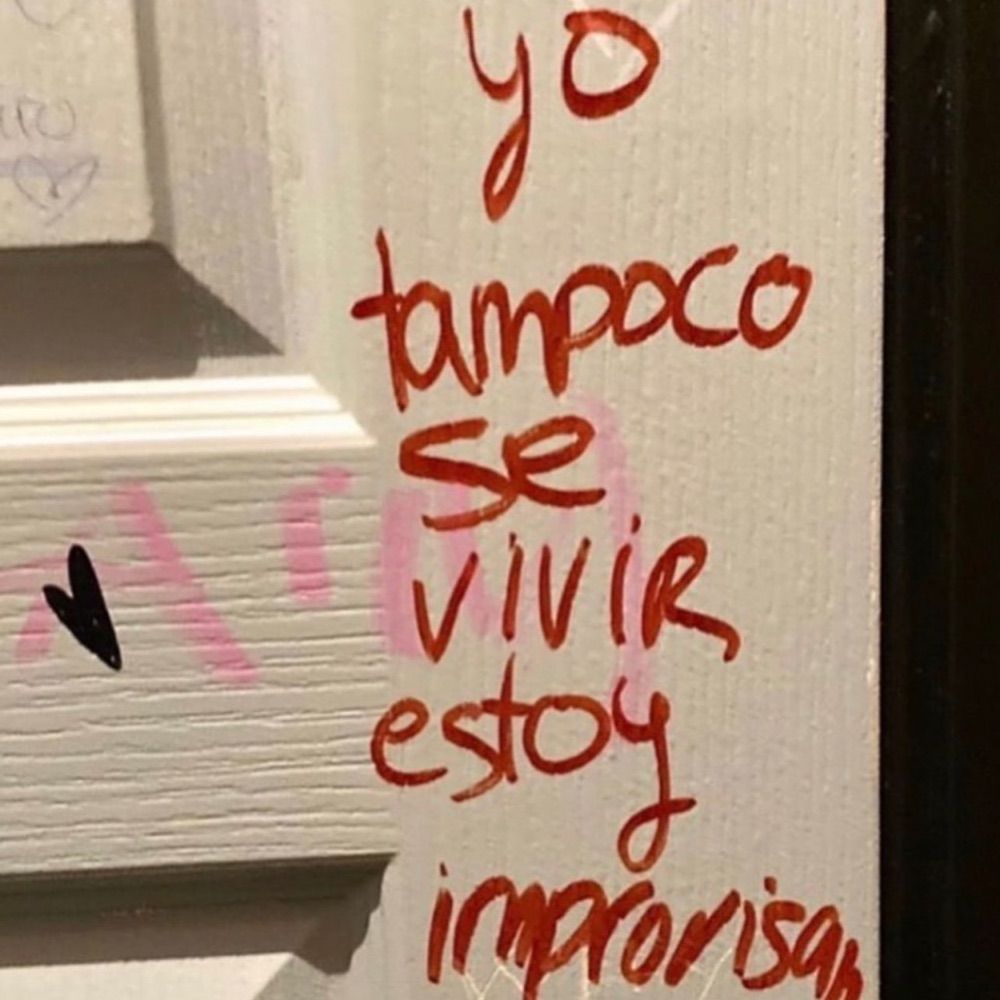 yo
tampoco
se
vivir
estoy
improvisan